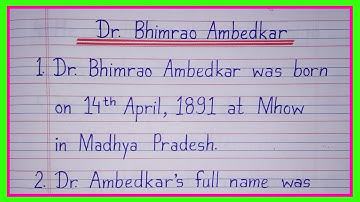 Dr. Bhimrao Ambedkar
1. Dr. Bhimrao Ambedkar was born
on 14th April, 1891 at Mhow
in Madhya Pradesh.
2. Dr. Ambedkar's full name was